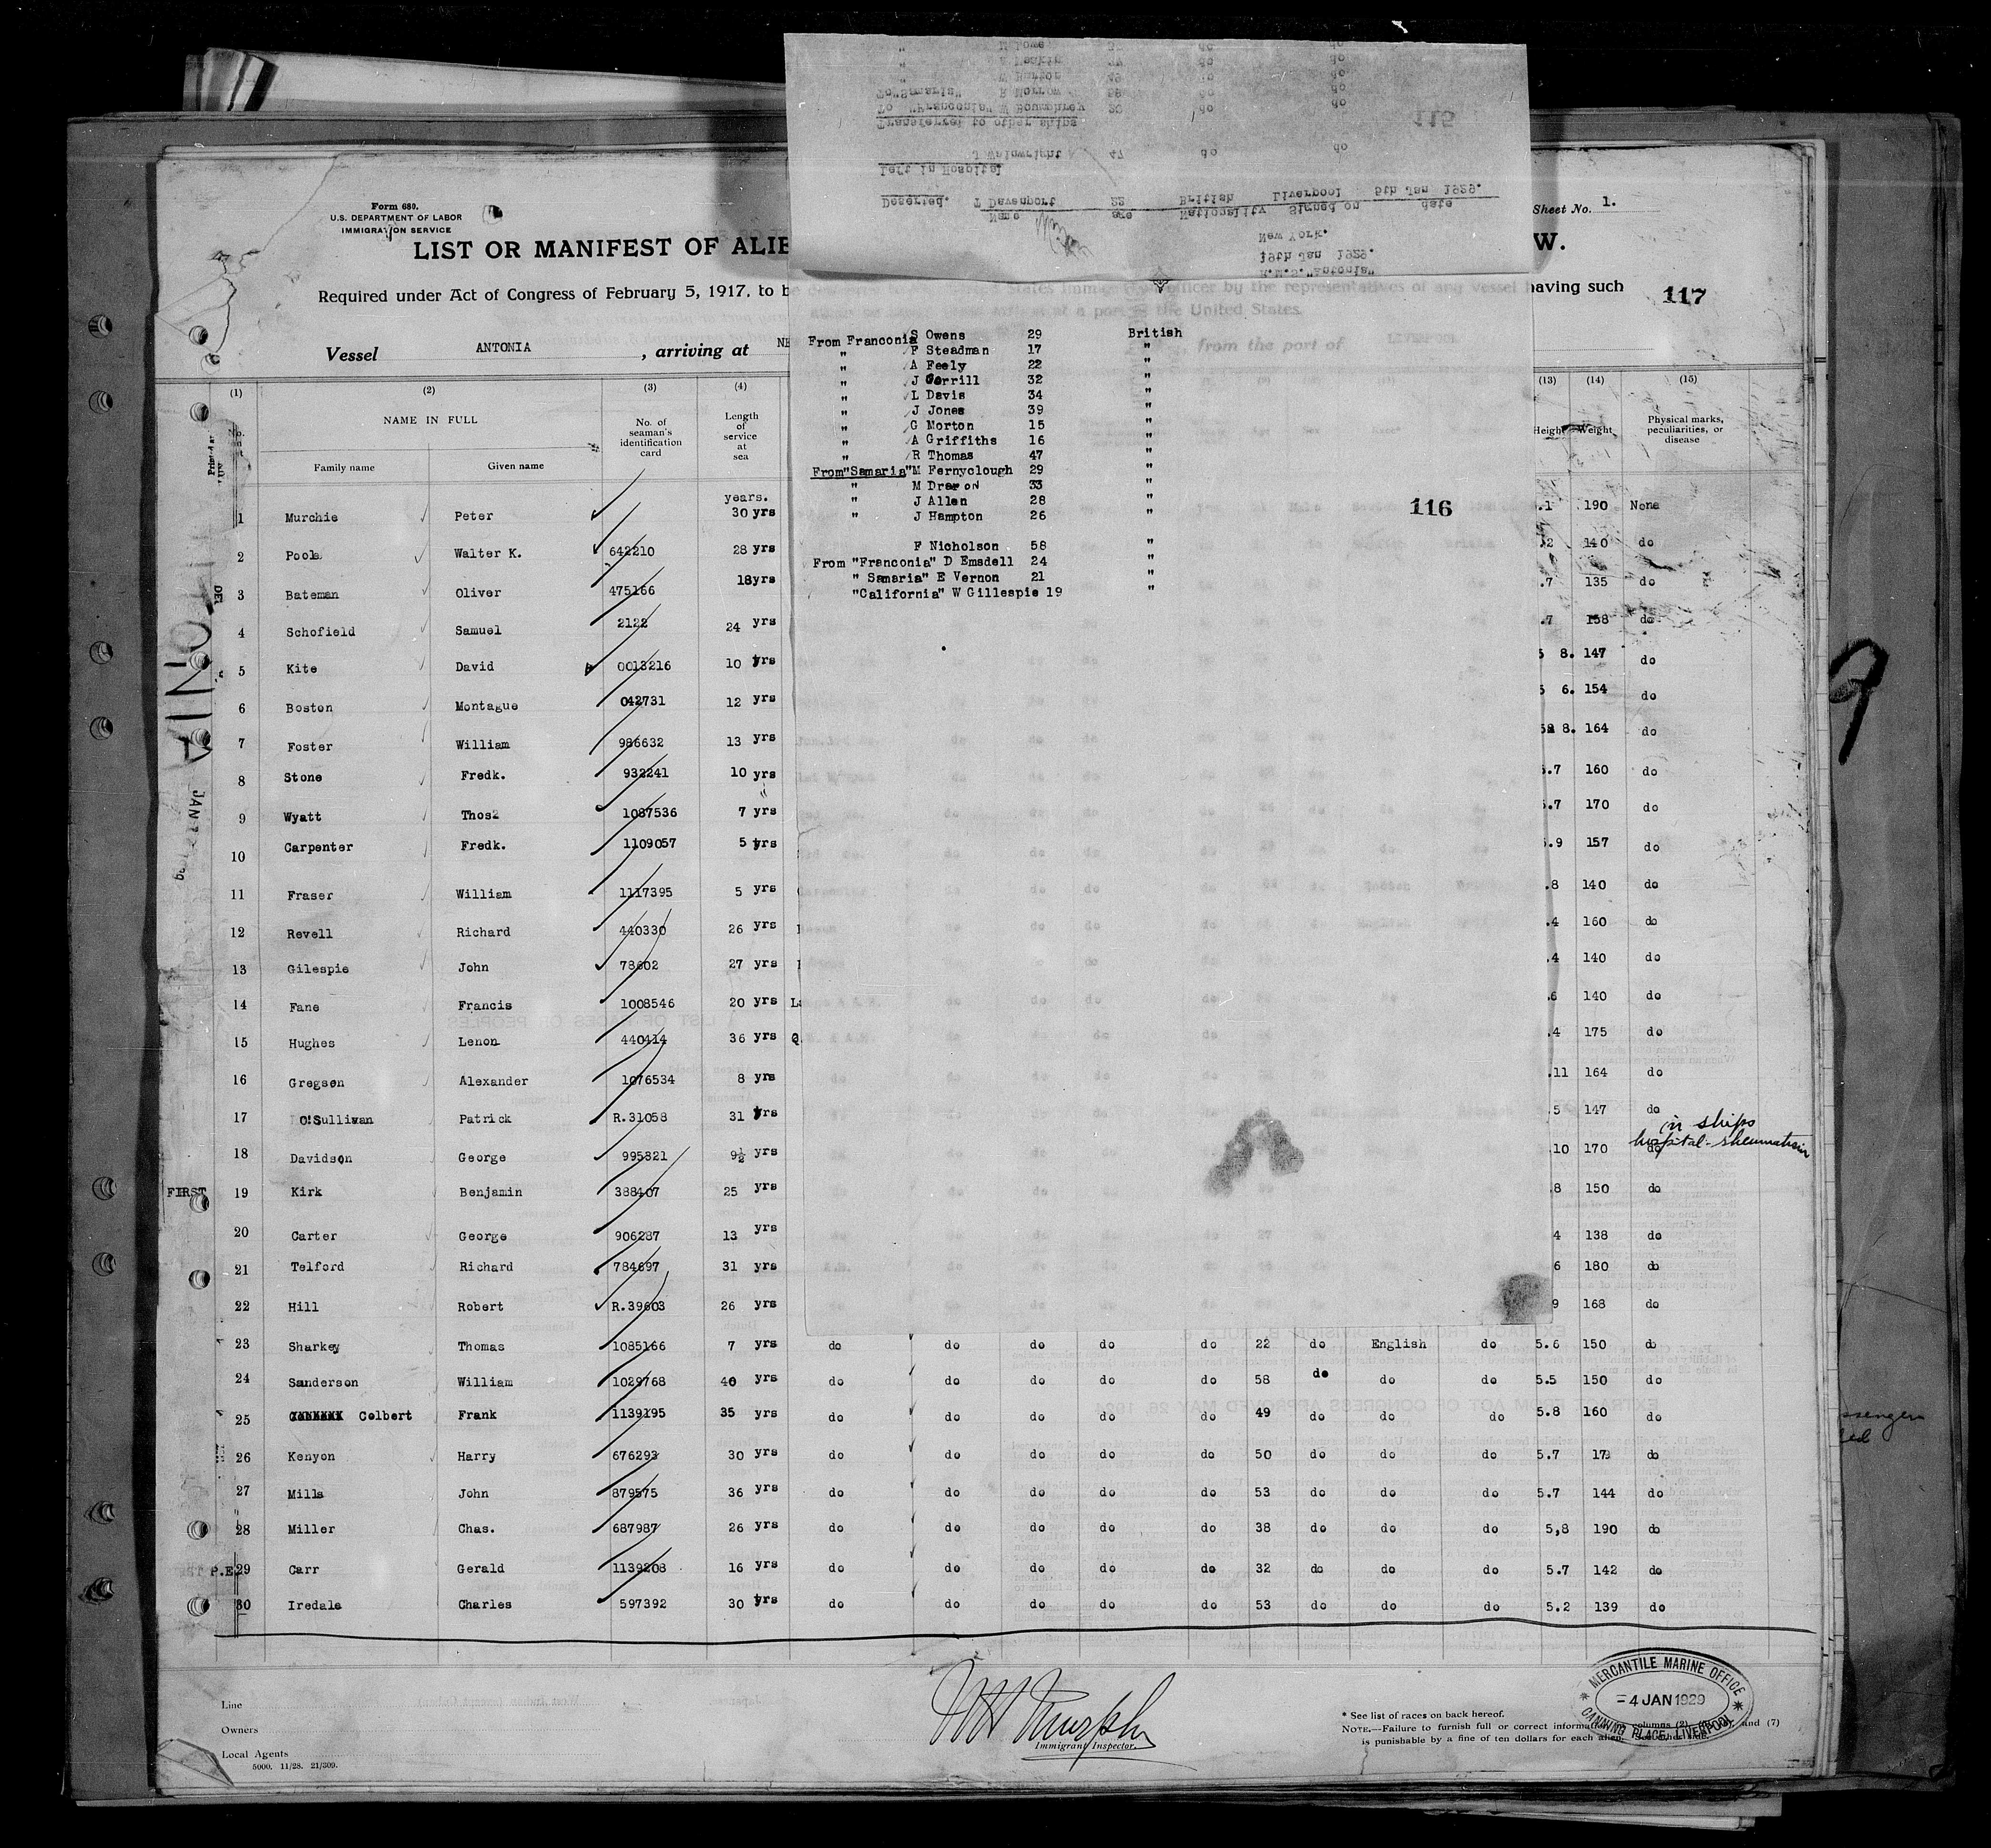 Form 680.
U.S. DEPARTMENT OF LABOR
IMMIGRATION SERVICE
LIST OR MANIFEST OF ALIE
W.
Sheet No. 1.
Required under Act of Congress of February 5, 1917, to b
having such
117
Vessel ANTONIA, arriving at NE
R.M.S."Antonia"
19th Jan 1929.
New York.
Name age Nationality Signed on date
Deserted. T Davenport 22 British Liverpool 5th Jan 1929.
Left in Hospital
J Wainwright 47 do do
Transferred to other ships
To "Franconia" W Boumphrey 20 do do
To"Samaria" R Morrow 58 do do
" W Burton 49 do do
115
From Franconia S Owens 29 British
" F Steadman 17 "
" A Feely 22 "
" J Gorrill 32 "
" L Davis 34 "
" J Jones 39 "
" G Morton 15 "
" A Griffiths 16 "
" R Thomas 47 "
From"Samaria"M Fernyclough 29 "
" M 33 "
" J Allen 28 "
" J Hampton 26 "
116
F Nicholson 58 "
From "Franconia" D Emsdell 24 "
" Samaria" E Vernon 21 "
"California" W Gillespie 19 "
(1) (2) (3) (4) (13) (14) (15)
NAME IN FULL
Family name Given name
No. of seaman's identification card
Length of service at sea
Height Weight Physical marks, peculiarities, or disease
years.
1 Murchie Peter 30 yrs .1 190 None
2 Poole Walter K. 642210 28 yrs 2 140 do
3 Bateman Oliver 475166 18yrs .7 135 do
4 Schofield Samuel 2122 24 yrs .7 158 do
5 Kite David 0013216 10 yrs 8. 147 do
6 Boston Montague 042731 12 yrs 6. 154 do
7 Foster William 986632 13 yrs 8. 164 do
8 Stone Fredk. 932241 10 yrs .7 160 do
9 Wyatt Thos 1087536 7 yrs .7 170 do
10 Carpenter Fredk. 1109057 5 yrs .9 157 do
11 Fraser William 1117395 5 yrs .8 140 do
12 Revell Richard 440330 26 yrs .4 160 do
13 Gilespie John 78602 27 yrs .4 140 do
14 Fane Francis 1008546 20 yrs .6 140 do
15 Hughes Lenon 440414 36 yrs .4 175 do
16 Gregson Alexander 1076534 8 yrs .11 164 do
17 O'Sullivan Patrick R.31058 31 yrs 5 147 do
in ships
hospital - rheumatism
18 Davidson George 995821 9½ yrs 10 170 do
FIRST
19 Kirk Benjamin 388407 25 yrs 8 150 do
20 Carter George 906287 13 yrs 4 138 do
21 Telford Richard 784697 31 yrs 6 180 do
22 Hill Robert R.39603 26 yrs 9 168 do
23 Sharkey Thomas 1085166 7 yrs do do do do do 22 do English do 5.6 150 do
24 Sanderson William 1029768 40 yrs do do do do do 58 do do do 5.5 150 do
25 Colbert Frank 1139195 35 yrs do do do do do 49 do do do 5.8 160 do
26 Kenyon Harry 676293 30 yrs do do do do do 50 do do do 5.7 do
27 Mills John 879575 36 yrs do do do do do 53 do do do 5.7 144 do
28 Miller Chas. 687987 26 yrs do do do do do 38 do do do 5,8 190 do
29 Carr Gerald 1139208 16 yrs do do do do do 32 do do do 5.7 142 do
30 Iredale Charles 597392 30 yrs do do do do do 53 do do do 5.2 139 do
Line
Owners
Local Agents
5000. 11/28. 21/309.
Immigrant Inspector.
* See list of races on back hereof.
NOTE.—Failure to furnish full or correct information columns (2) and (7)
is punishable by a fine of ten dollars for each alien.
MERCANTILE MARINE OFFICE
-4 JAN 1929
CANNING PLACE, LIVERPOOL